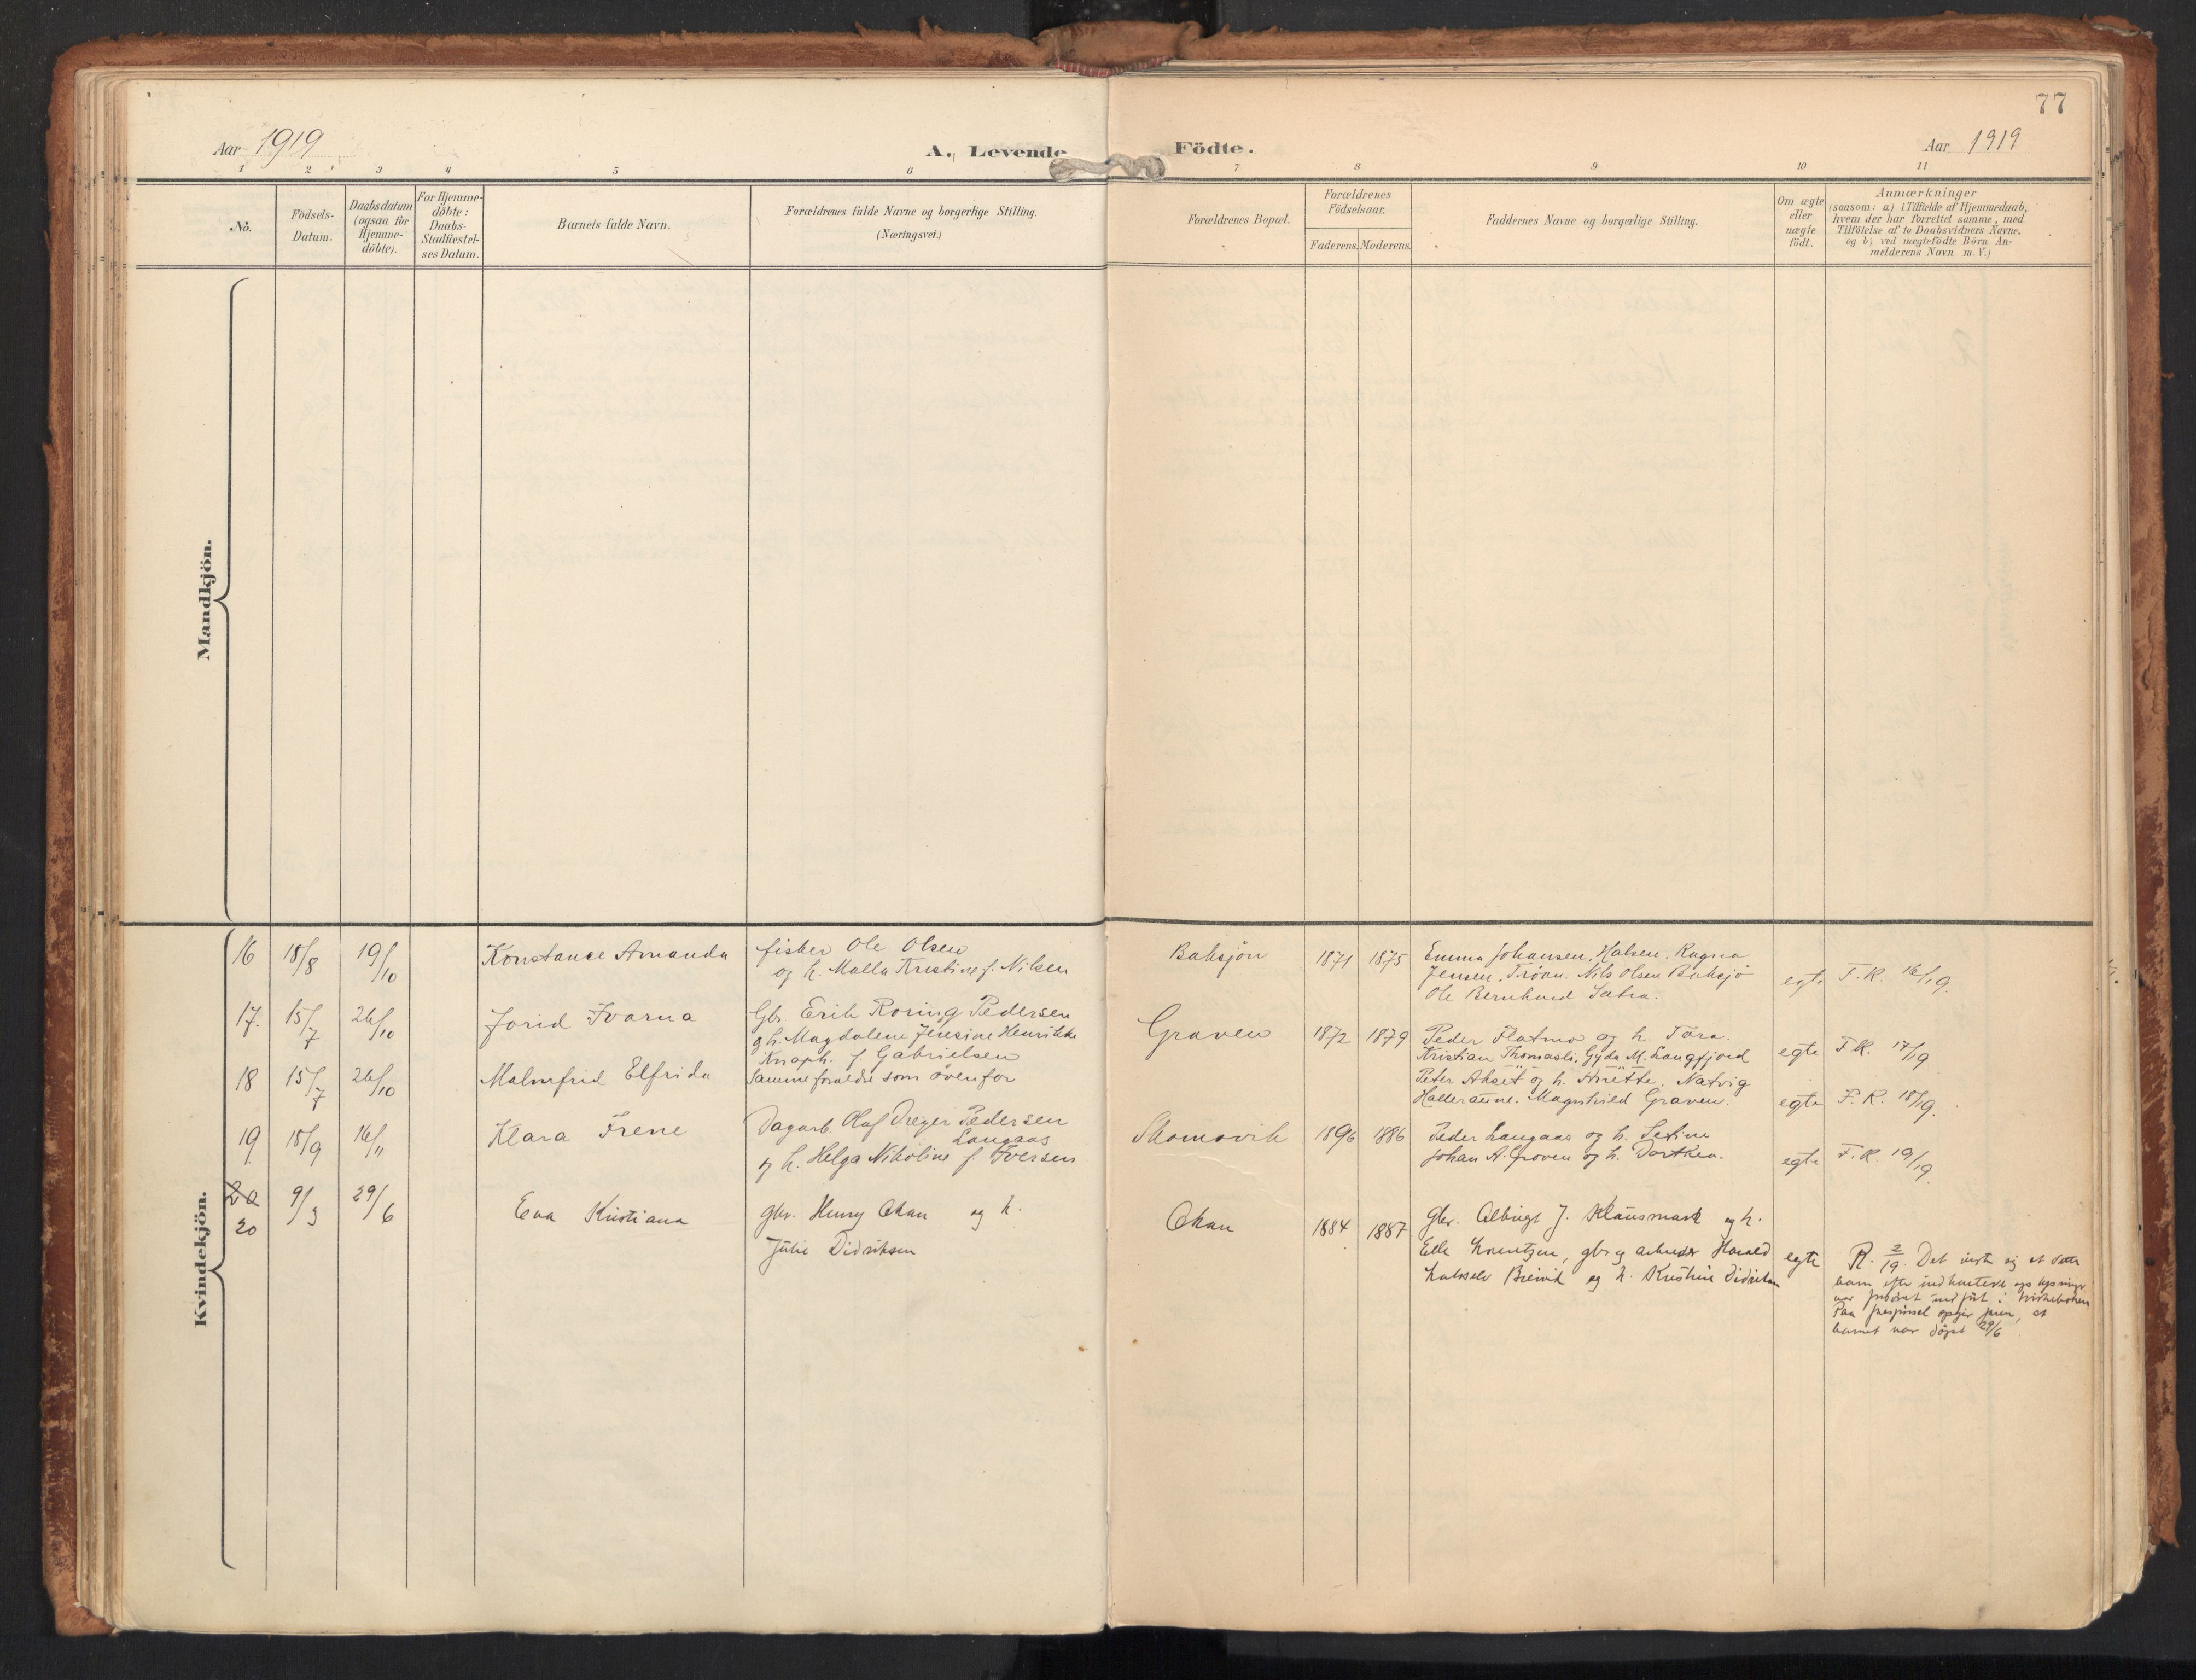 77
Aar 1919
A. Levende
Födte.
Aar 1919
1 2 3 4 5 6 7 8 9 10 11
No.
Födsels-
Datum.
Daabsdatum
(ogsaa for
Hjemme-
döbte).
For Hjemme-
döbte:
Daabs-
Stadfæstel-
ses Datum.
Barnets fulde Navn.
Forældrenes fulde Navne og borgerlige Stilling.
(Næringsvei.)
Forældrenes Bopæl.
Forældrenes
Födselsaar.
Faderens.
Moderens.
Faddernes Navne og borgerlige Stilling.
Om ægte
eller
uægte
födt.
Anmærkninger
(saasom: a) i Tilfælde af Hjemmedaab,
hvem der har forrettet samme, med
Tilföielse af to Daabsvidners Navne.
og b) ved uægtefödte Börn An-
melderens Navn m. V.)
Mandkjön.
Kvindekjön.
16 18/8 19/10 Konstance Amanda
fisker Ole Olsen
og h. Malla Kristine f. Nilsen
Baksjön 1871 1875
Emma Johansen, Halsen. Ragna
Jensen, Tröan. Nils Olsen Baksjö
Ole Bernhard Sætra.
egte F.R. 16/19.
17. 15/7 26/10 Jorid Ivarna
Gbr. Erik Roring Pedersen
og h. Magdalene Jensine Henrikke
Knaph. f. Gabrielsen
Graven 1872 1879
Peder Flatmo og h. Tora.
Kristian Thomasli. Gyda M. Langfjord
egte F.R. 17/19
18 15/7 26/10 Malmfrid Elfrida
Samme forældre som ovenfor
Peter Akset og h. Anette. Natvig
Halleraune. Magnhild Graven.
egte F.R. 18/19.
19 18/9 16/11 Klara Irene
Dagarb. Olaf Dreyer Pedersen
Langaas
og h. Helga Nikoline f. Iversen
Skomovik 1896 1886
Peder Langaas og h.
Johan A. Groven og h. Dorthea.
egte F.R. 19/19.
20
20 9/3 29/6 Eva Kristiana
gbr. Henry Okan og h.
Julie Didriksen
Okan 1884 1887
gbr. Albrigt J. Klausmark og h.
Elle Lorentzen, gbr og arbeider Harald
Lakselv Breivik og h. Kristine Didriksen
egte R. 2/19. Det viste sig at dette
barn efter indhentede oplysninger
var ind fört i kirkeboken
Paa forespörsel opgir faren, at
barnet var döpt 29/6